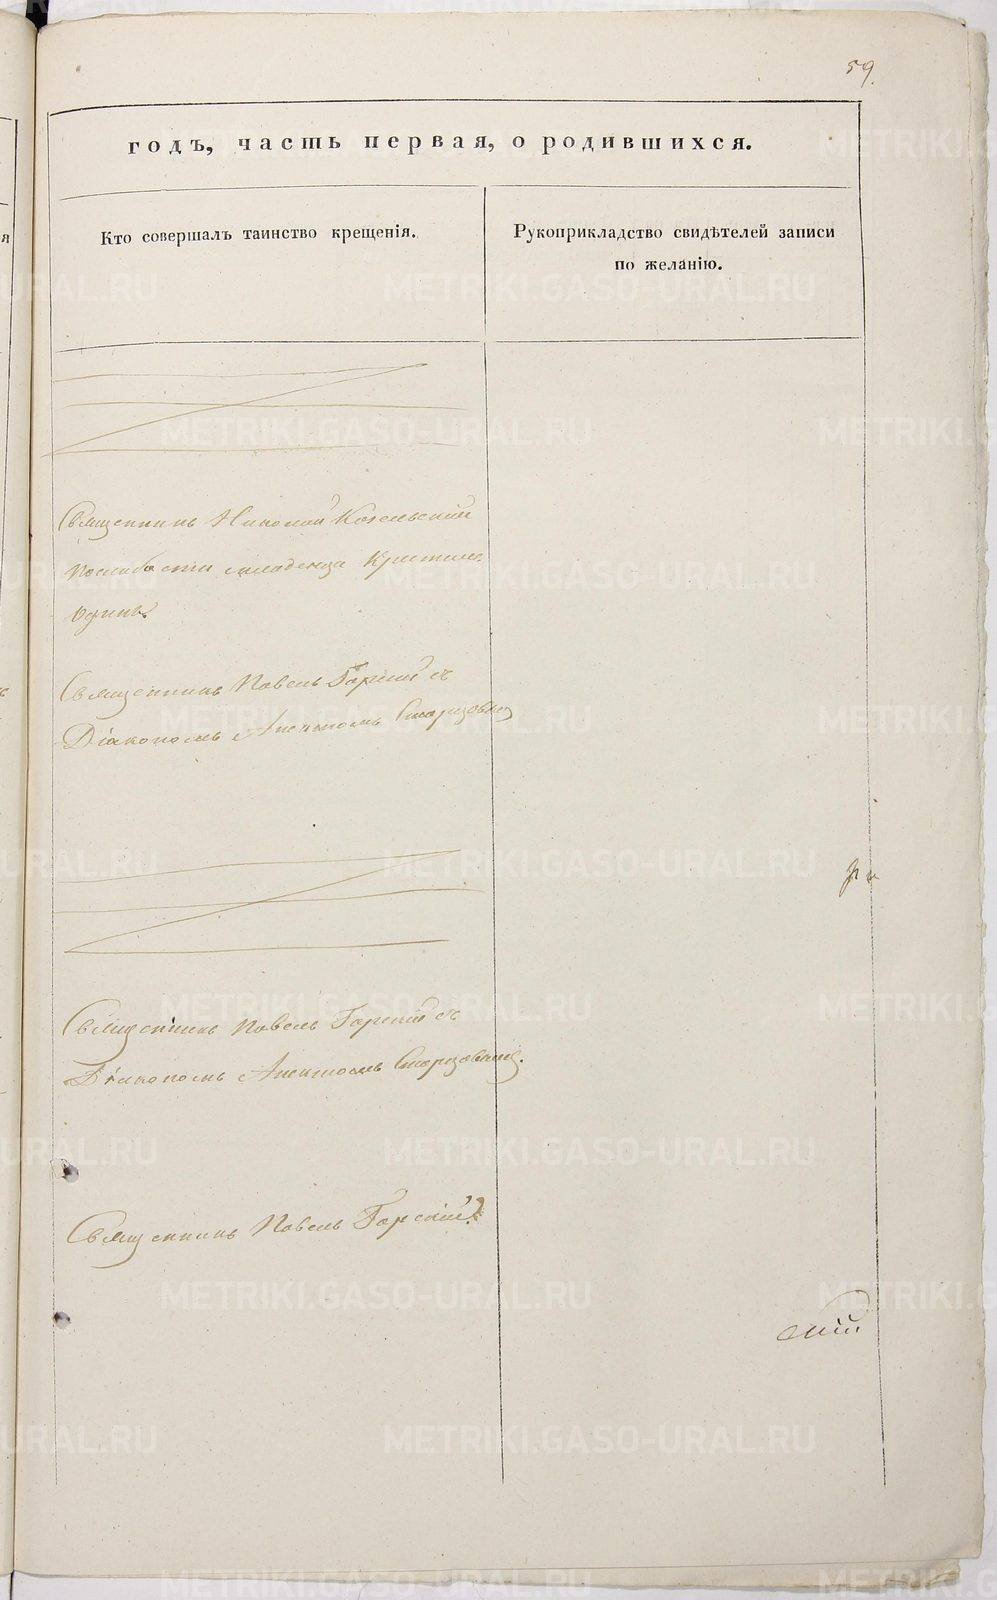 59.
годъ, часть первая, о родившихся.
Кто совершалъ таинство крещенія.
Рукоприкладство свидѣтелей записи
по желанію.
Священникъ Николай Козельский
послабости младенца Крестилъ
Одинъ.
Священникъ Павелъ Горскій съ
Діакономъ Старцовымъ
Священникъ Павелъ Горскій съ
Діакономъ Старцовымъ.
Священникъ Павелъ Горскій.
METRIKI.GASO-URAL.RU